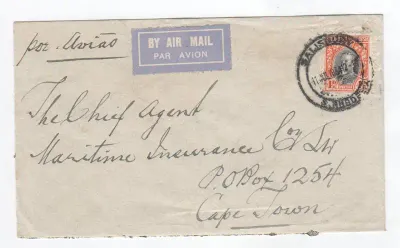 por Avião
BY AIR MAIL
PAR AVION
SALISBURY
S. RHODESIA
The Chief Agent
Maritime Insurance Coy Ld
P.O. Box 1254
Cape Town